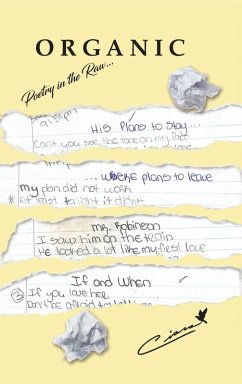 ORGANIC
Poetry in the Raw...
His Plans to Stay...
Can't you see the tore on my face
...where plans to leave
my plan did not work
* At least tonight it didn't
Mr. Robinson
I saw him on the train
He looked a lot like my first love
If and When ✓
③ If you love her
Don't be afraid to
Ciara